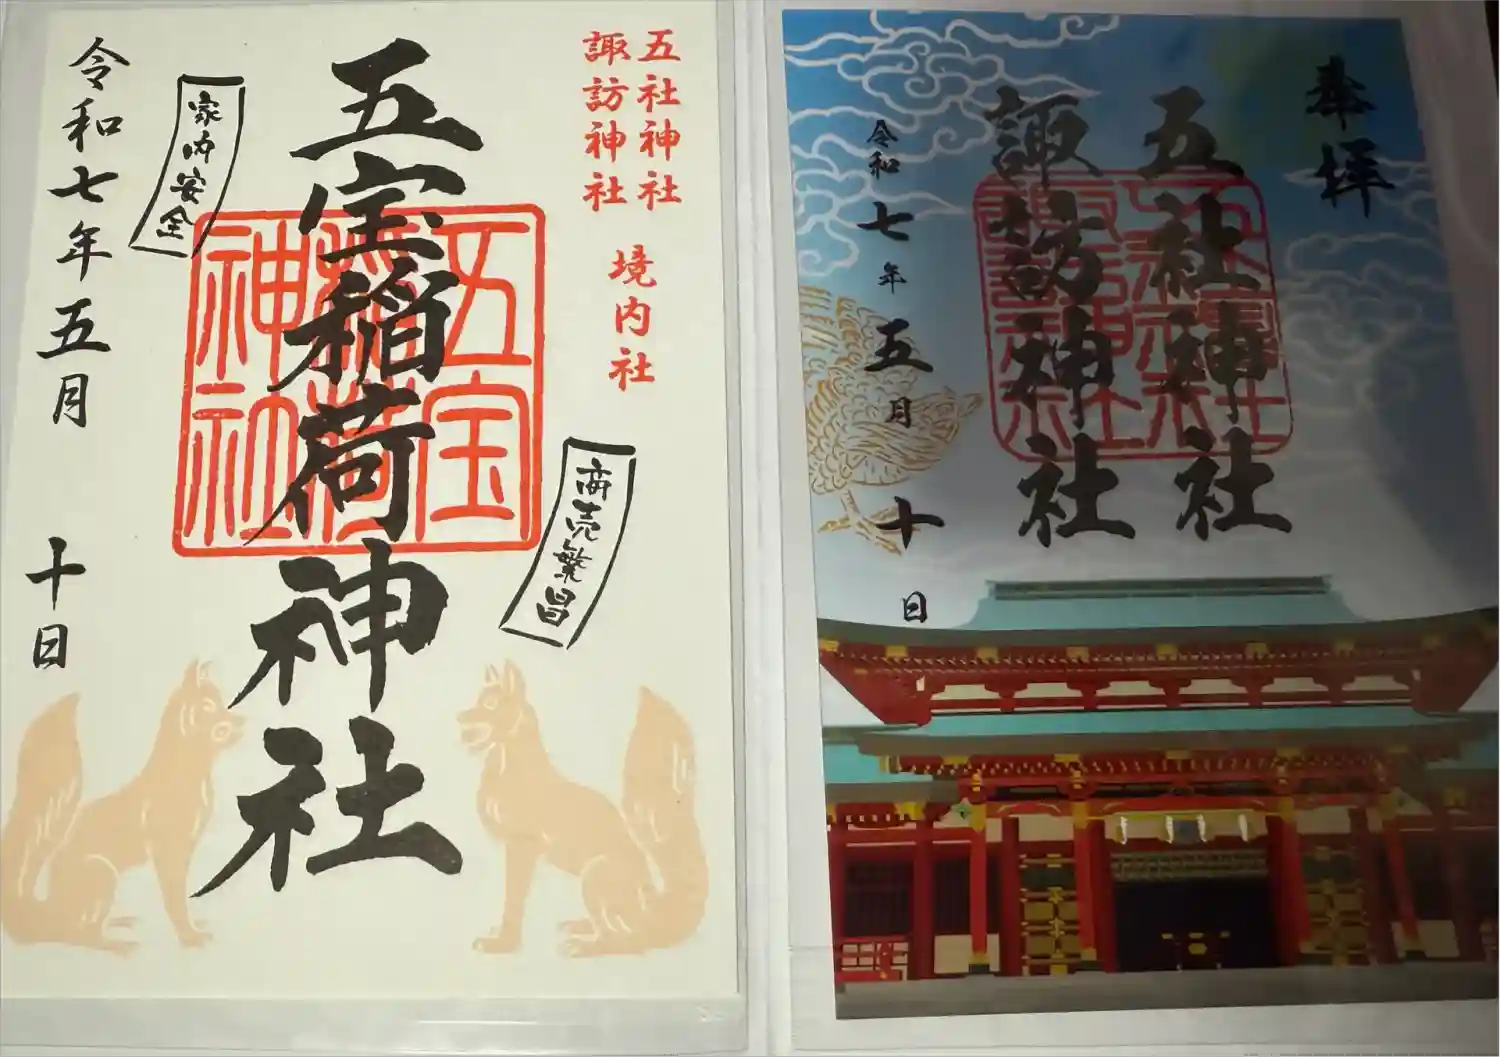 五社神社
諏訪神社
境内社
商売繁昌
五宝稲荷神社
五宝
稲荷
神社
家内安全
令和七年五月十日
奉拝
五社神社
諏訪神社
令和七年五月十日